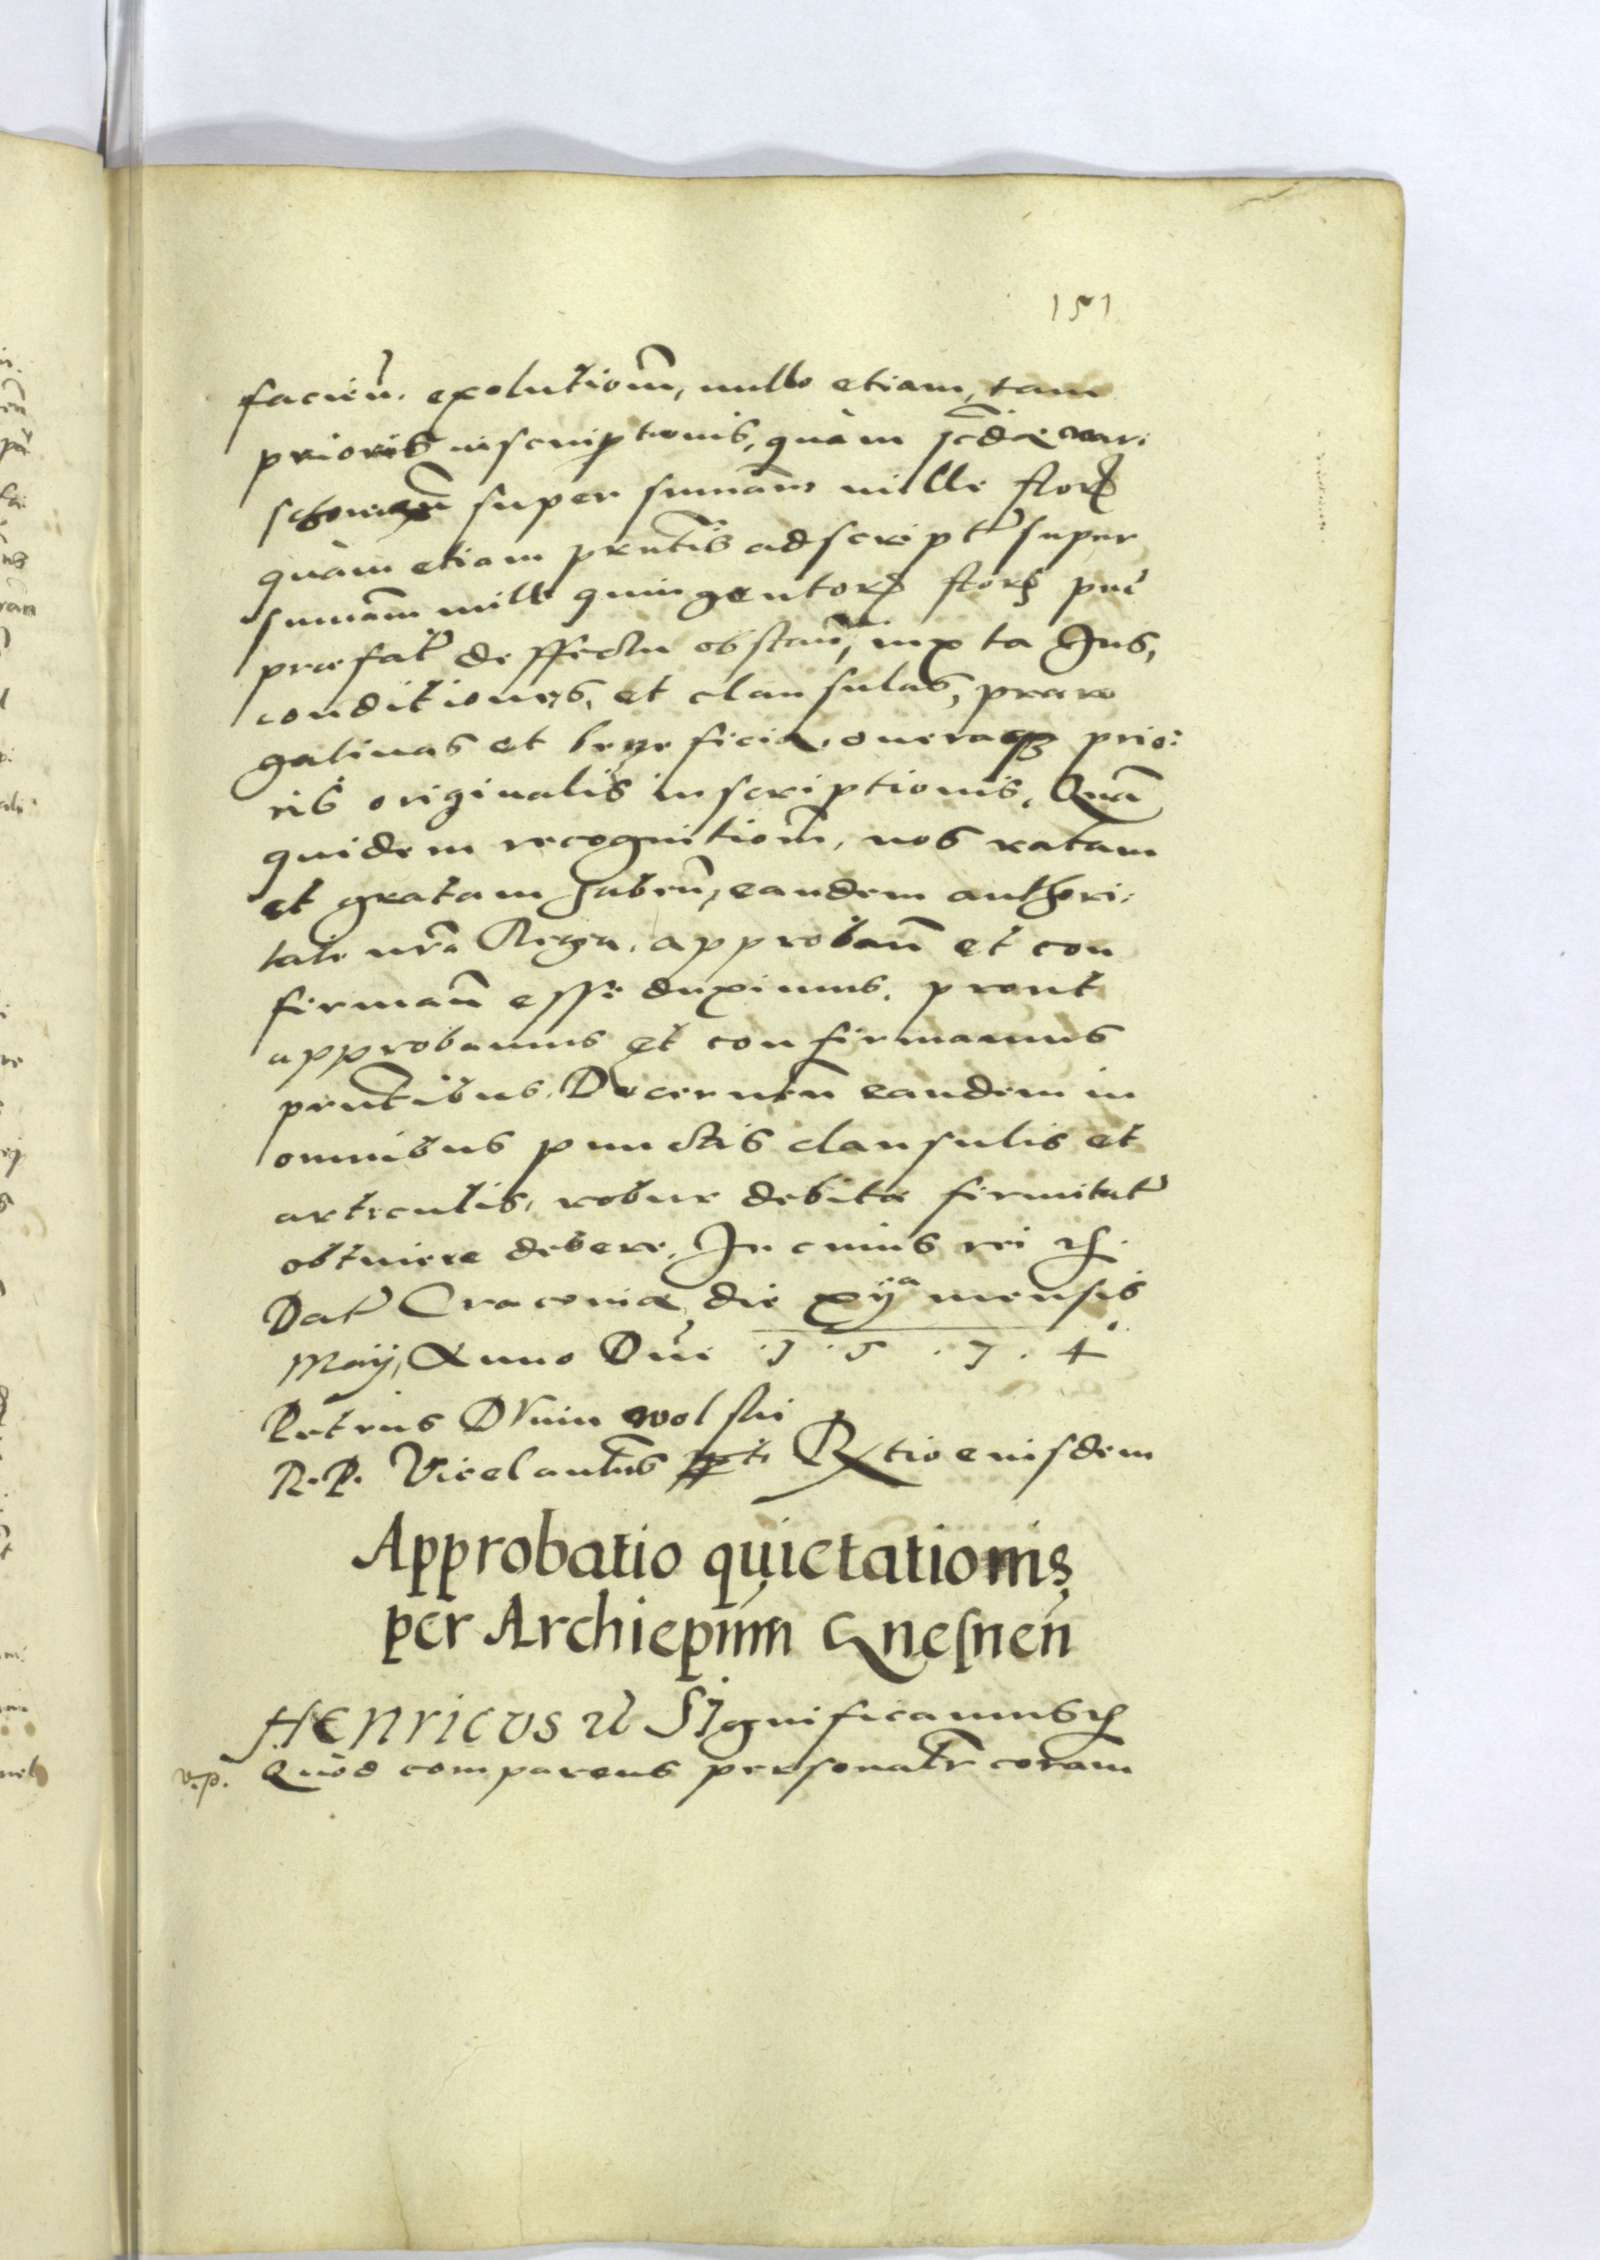 151
facień. exolutiom̃, nullo etiam, tam
prioris inscriptionis, quàm sc̃dæ
super sum̃am mille flor̃
quàm etiam prñtis adscript̃ super
sum̃am mille quingentor̃ flor̃ pñt
præfat̃ deffectu obstan̄, iuxta Jus,
conditiones, et clausulas, præro
gatiuas et beneficia, oneraq̃ prio:
ris originalis inscriptionis, Quã
quidem recognitiom̃, nos ratam
et gratam haben̄, eandem authori:
tate nr̃a Regia, approban̄ et con
firman̄ esse duximus, prout
approbamus et confirmamus
prñtibus. Decernen̄ eandem in
omnibus punctis clausulis et
articulis, robur debitæ firmitat̃
obtinere debere. In cuius rei &c.
Dat̃ Cracouiæ, die xij^a mensis
Maij, Anno Dñi .1.5.7.4.
Petrus Dunin wolski
R. P. Vicecancellarius sspt. Rtio eiusdem
Approbatio quietationis
per Archiep̃um Gnesneñ
Henricus &c Significamus &c
v.p. Quòd comparens personalr̃ coram